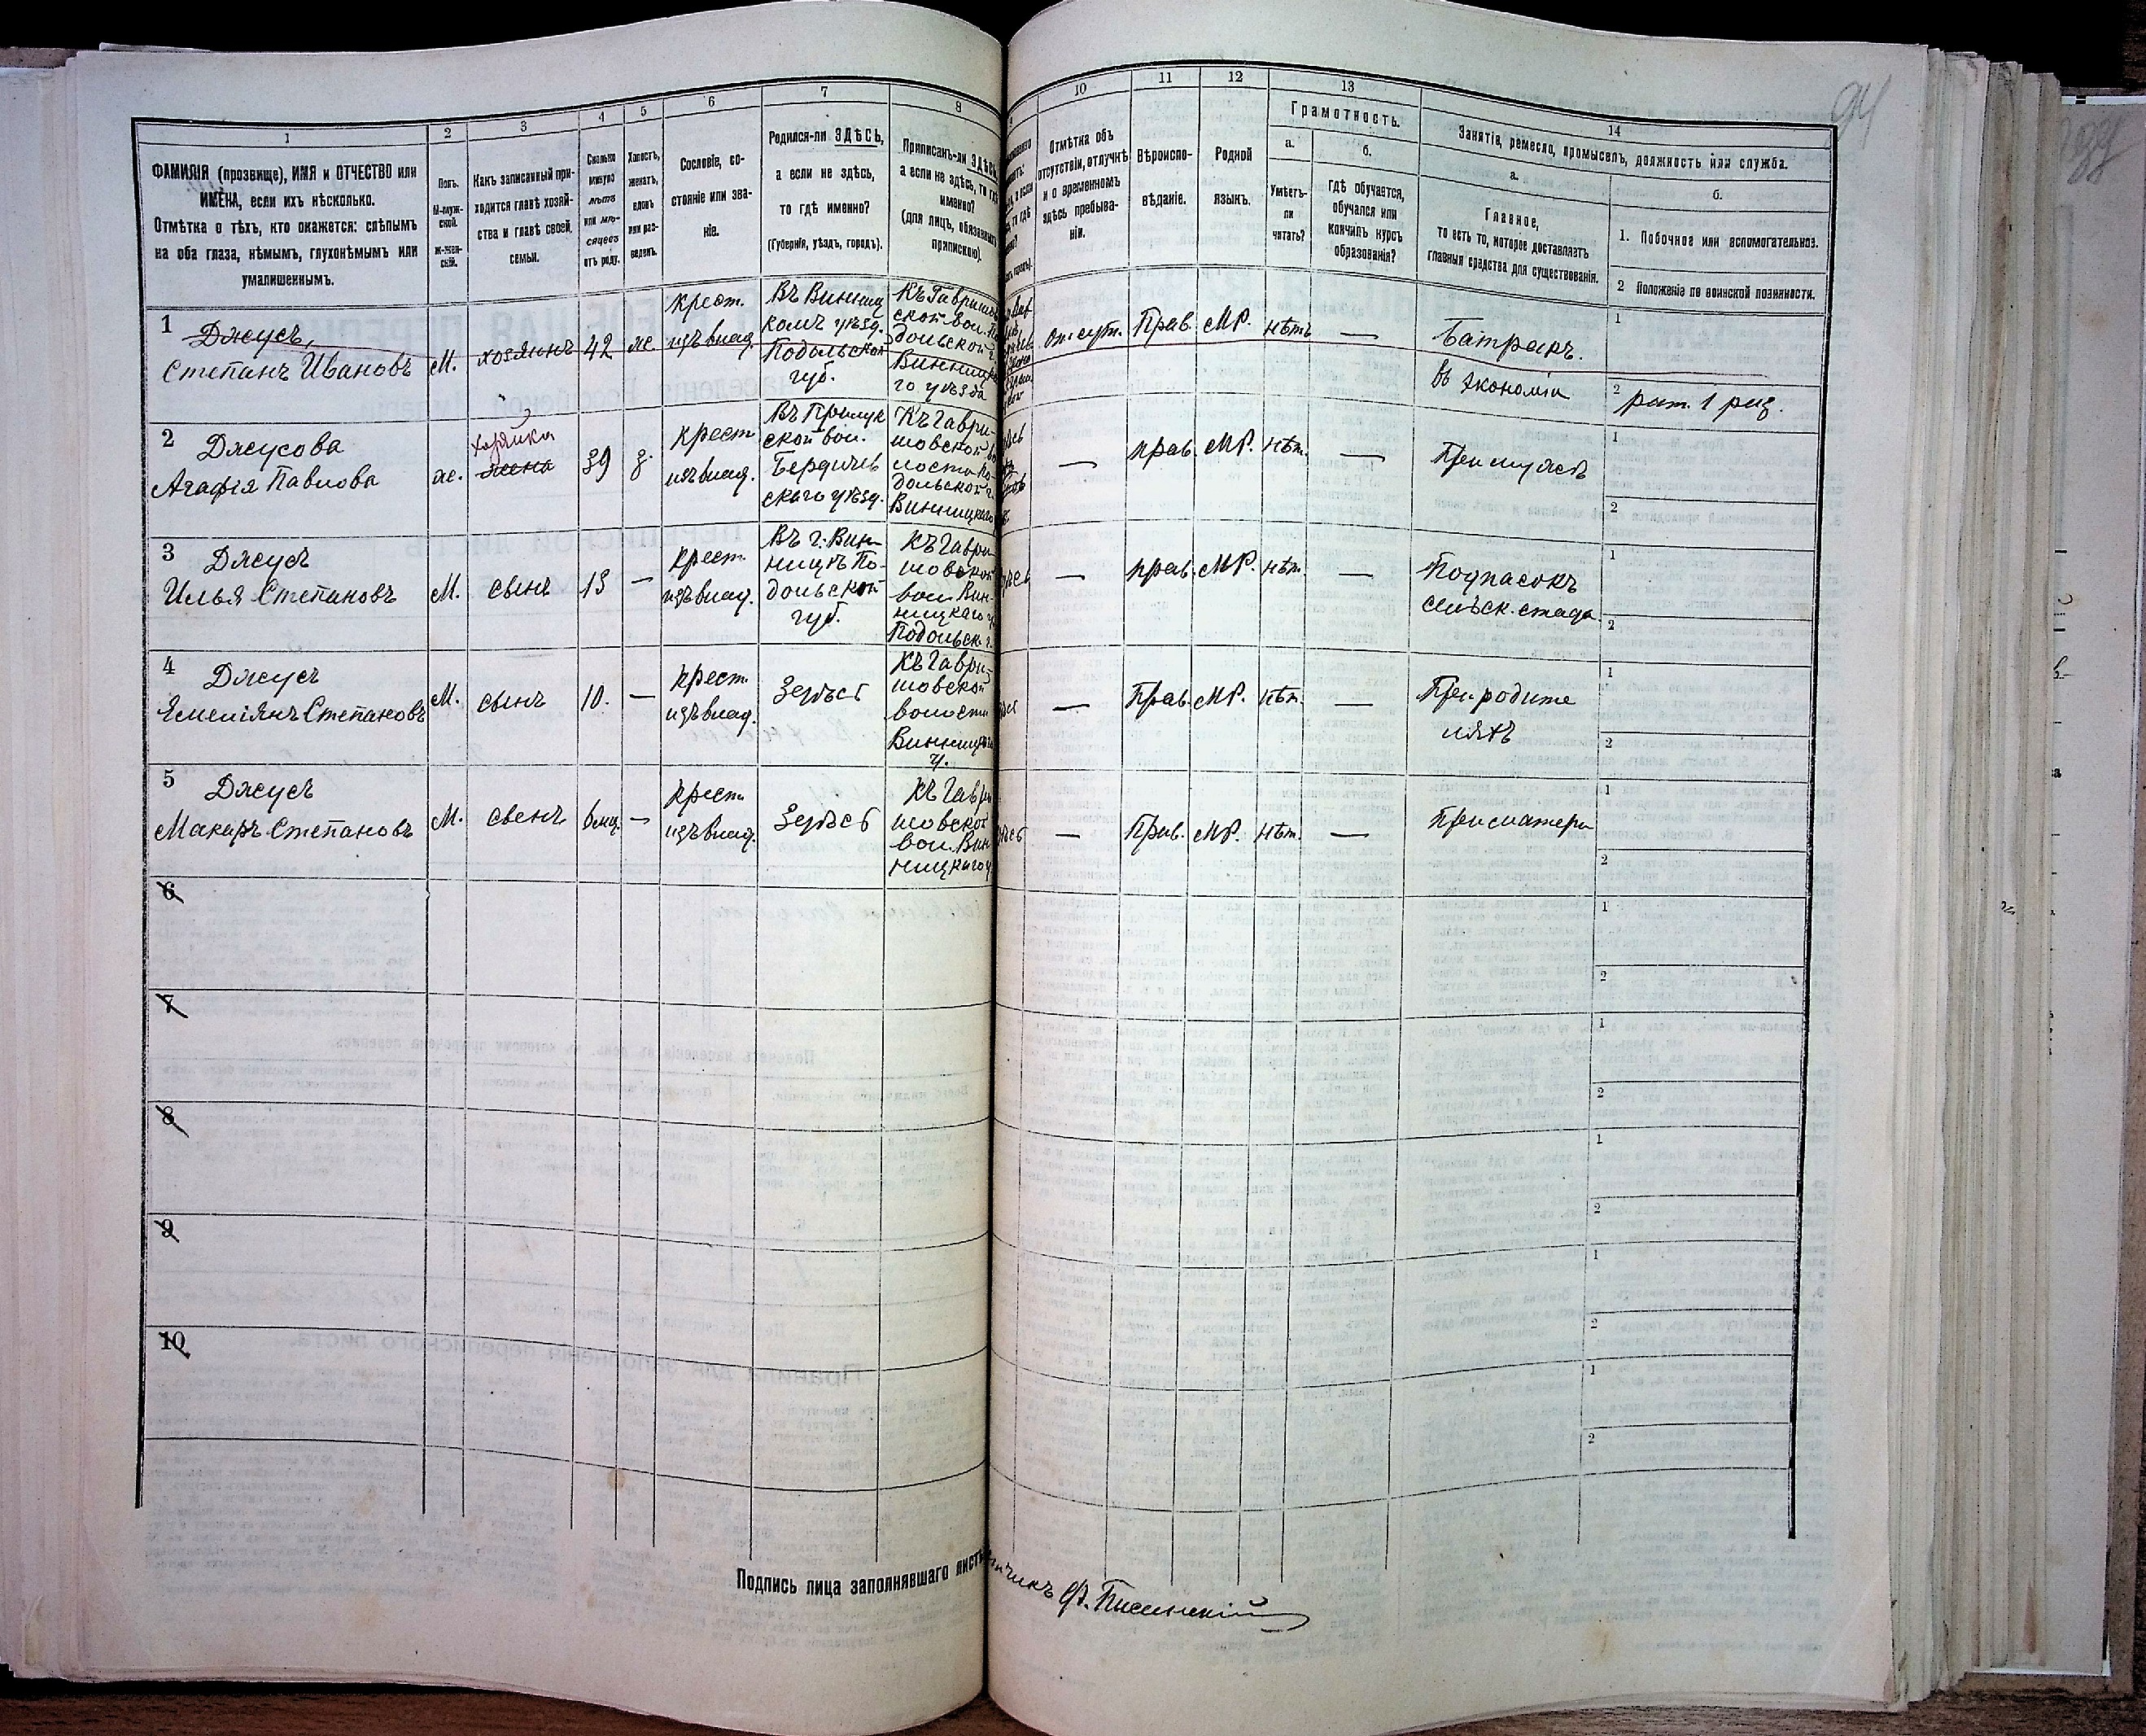 1
2
3
4
5
6
7
8
ФАМИЛІЯ (прозвище), ИМЯ и ОТЧЕСТВО или
ИМЕНА, если ихъ нѣсколько.
Отмѣтка о тѣхъ, кто окажется: слѣпымъ
на оба глаза, нѣмымъ, глухонѣмымъ или
умалишеннымъ.
Полъ.
М-муж-
ской.
ж-жен-
скій.
Какъ записанный при-
ходится главѣ хозяй-
ства и главѣ своей
семьи.
Сколько
минуло
лѣтъ
или мѣ-
сяцевъ
отъ роду.
Холостъ,
женатъ,
вдовъ
или раз-
веденъ.
Сословіе, со-
стояніе или зва-
ніе.
Родился-ли ЗДѢСЬ,
а если не здѣсь,
то гдѣ именно?
(Губернія, уѣздъ, городъ).
Приписанъ-ли ЗДѢСЬ,
а если не здѣсь, то гдѣ
именно?
(для лицъ, обязанныхъ
припиской).
10
11
12
13
14
Отмѣтка объ
отсутствіи, отлучкѣ
и о временномъ
здѣсь пребыва-
ніи.
Вѣроиспо-
вѣданіе.
Родной
языкъ.
Грамотность.
а.
б.
Умѣетъ-
ли
читать?
Гдѣ обучается,
обучался или
кончилъ курсъ
образованія?
Занятіе, ремесло, промыселъ, должность или служба.
а.
б.
Главное,
то есть то, которое доставляетъ
главныя средства для существованія.
1. Побочное или вспомогательное.
2 Положеніе по воинской повинности.
94
1
Джусъ,
Степанъ Ивановъ
М.
хозяинъ
42
ж.
крест.
изъ влад.
Въ Винниц
комъ уѣзд.
Подольской
губ.
Къ Гавришов
ской вол. По
дольской г.
Винницка
го уѣзда
отсут.
Прав.
МР.
нѣтъ
—
Батракъ.
въ экономіи
1
2 рат. 1 раз.
2
Джусова
Агафія Павлова
ж.
хозяйка
жена
39
з.
крест
изъ влад.
Въ Прилук
ской вол.
Бердичев
скаго уѣзд.
Къ Гаври-
шовской во
лости По-
дольской г.
Винницкаго
—
прав.
МР.
нѣт.
—
При мужѣ
1
2
3
Джусъ
Илья Степановъ
М.
сынъ
13
—
крест
изъ влад.
Въ г. Вин-
ницѣ По-
дольской
губ.
Къ Гаври-
шовской
вол. Вин-
ницкаго у.
Подольск. г.
—
прав.
МР.
нѣт.
—
Подпасокъ
сельск. стада
1
2
4
Джусъ
Емеліянъ Степановъ
М.
сынъ
10.
—
крест
изъ влад.
Здѣсь
Къ Гаври-
шовской
волости
Винницкаго
у.
—
Прав.
МР.
нѣт.
—
При родите
ляхъ
1
2
5
Джусъ
Макаръ Степановъ
М.
сынъ
6 мц.
—
крест
изъ влад.
Здѣсь
Къ Гаври
шовской
вол. Вин
ницкаго у
—
Прав.
МР.
нѣт.
—
При матери
1
2
6
1
2
7
1
2
8
1
2
9
1
2
10
1
2
Подпись лица заполнявшаго листъ